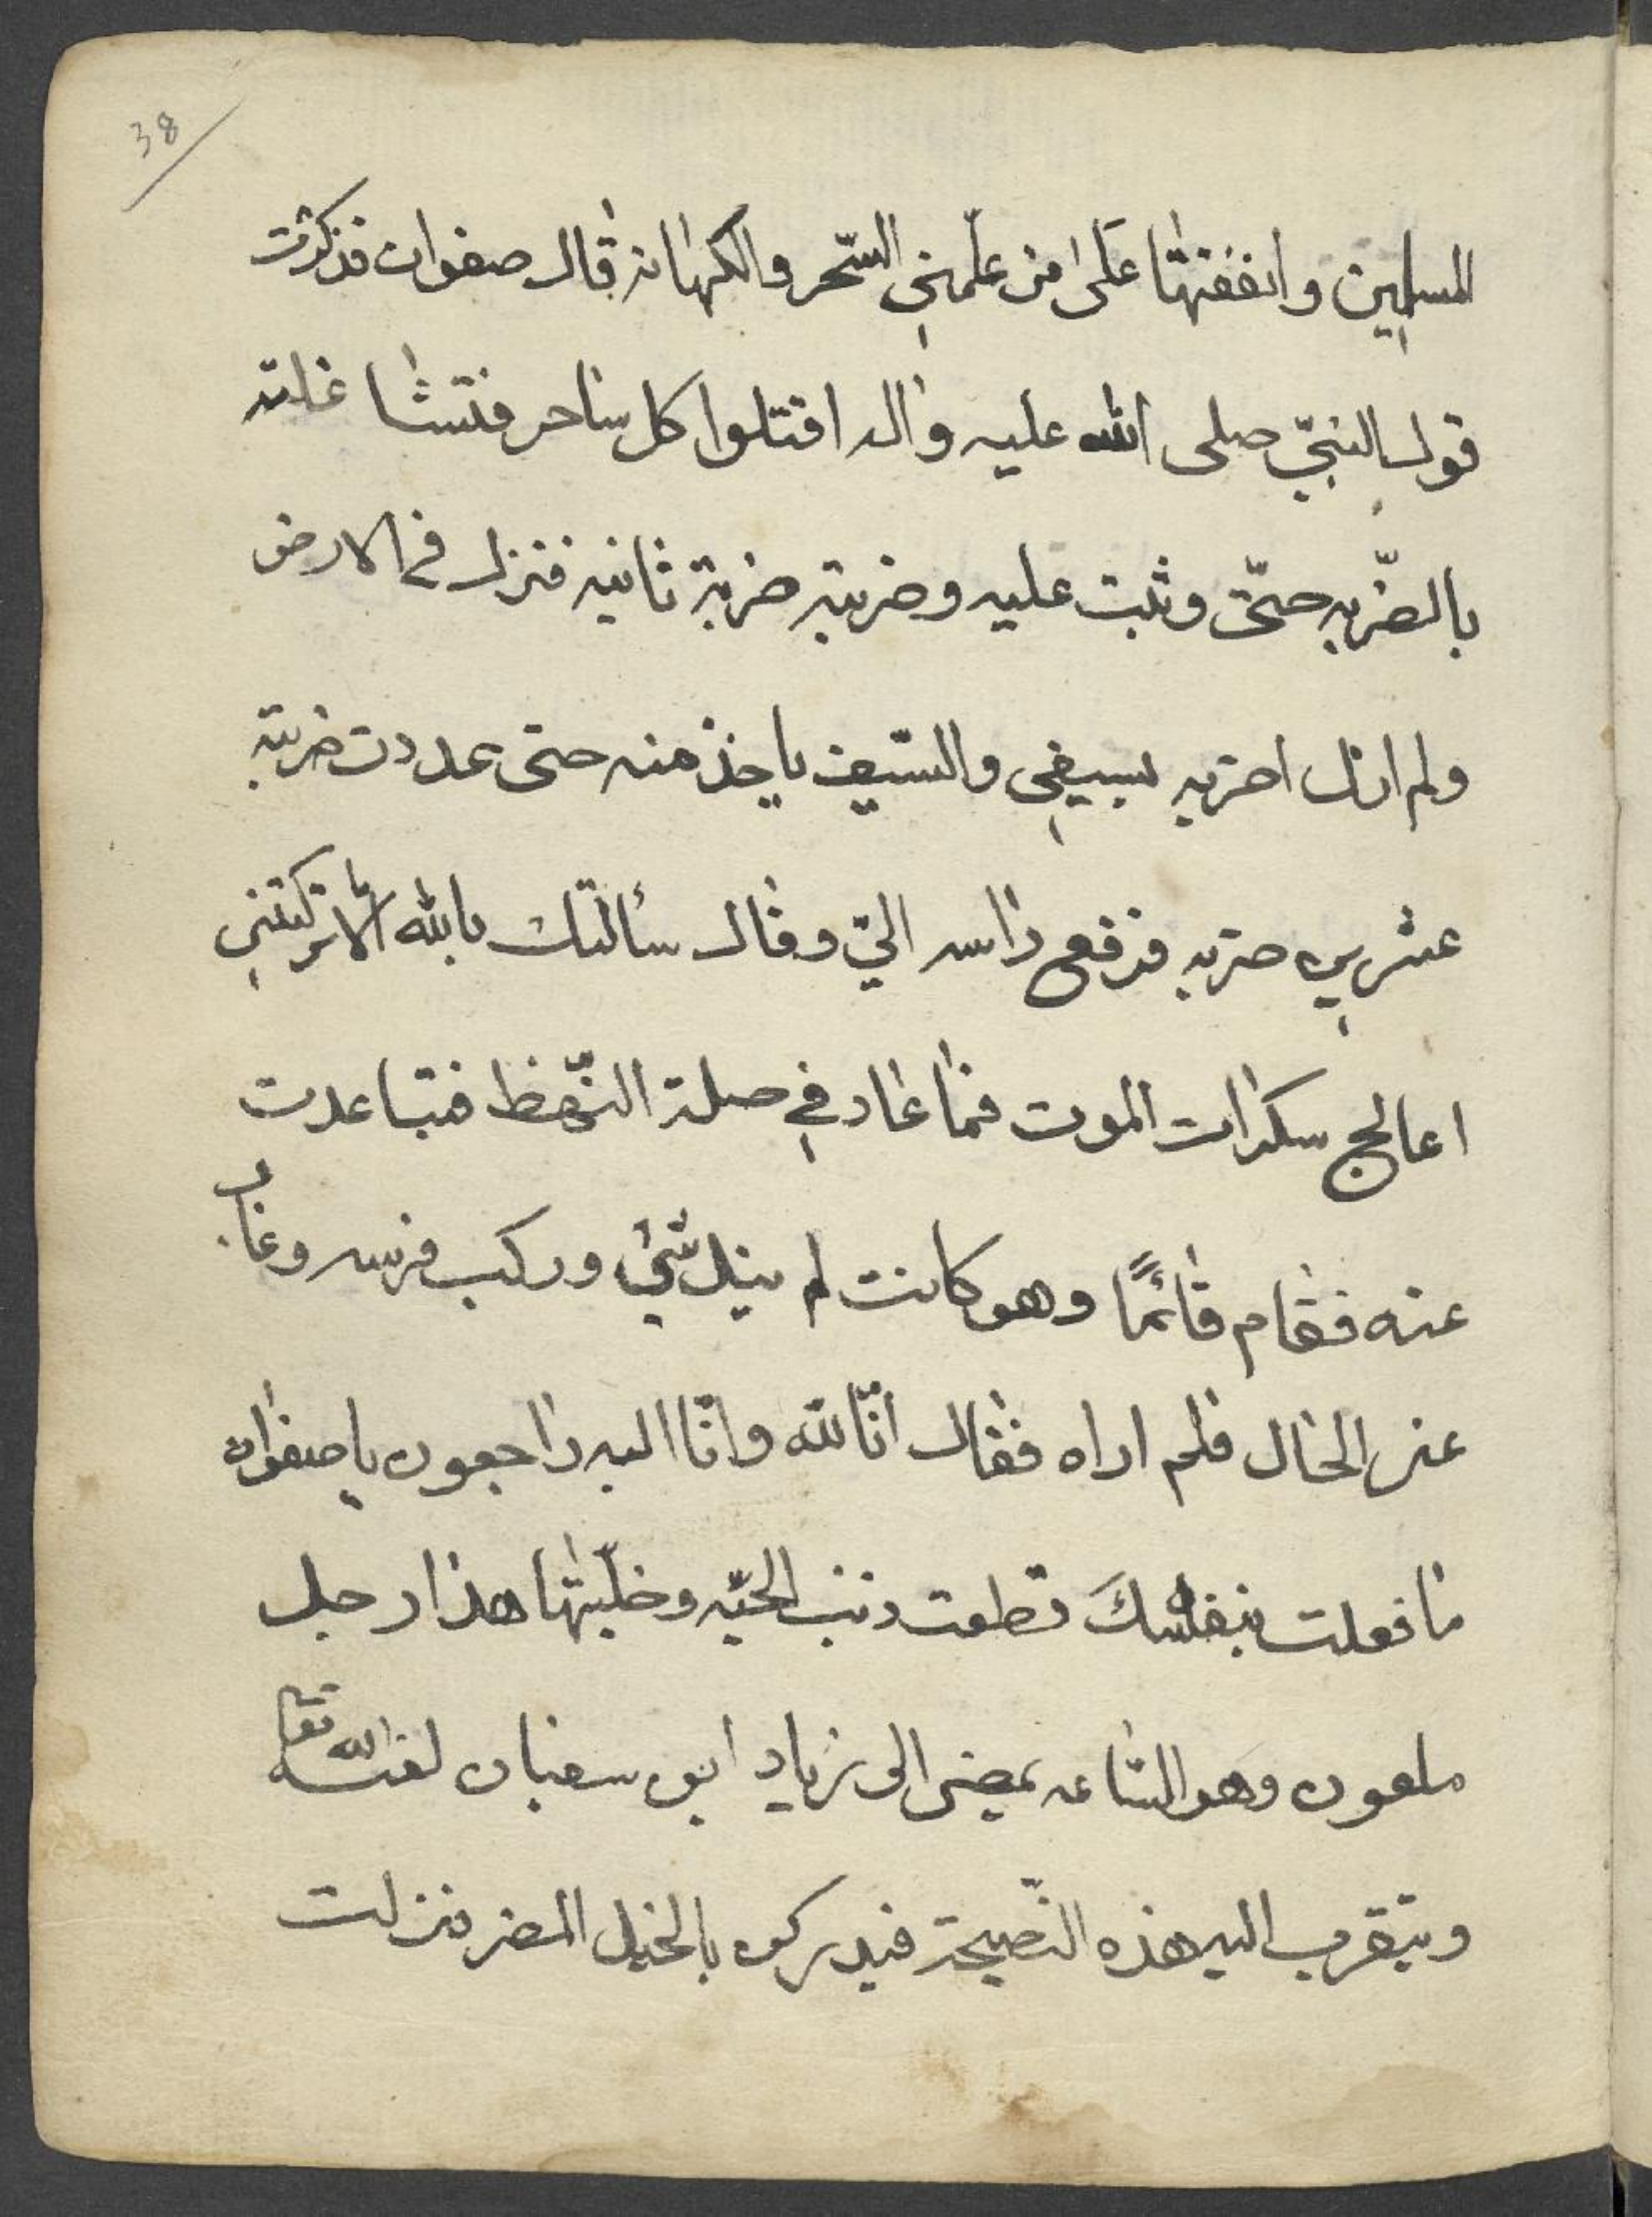 38
المسلمين وانفقتها على من علّمني السّحر والكهانه قال صفوان فذكرت
قول النبيّ صلى الله عليه واله اقتلوا كل ساحر فتشاغلته
بالضّربه حتّى وثبت عليه وضربته ضربة ثانيه فنزل في الارض
ولم ازل اضربه بسيفي والسّيف ياخذ منه حتى عددت ضربته
عشرين ضربه فرفع راسه اليّ وقال سألتك بالله الا ما تركتني
اعالج سكرات الموت فما عاد في صلة النّهظ فتباعدت
عنه فقام قائمًا وهو كانت لم ينل شئ وركب فرسه وغاب
عن الحال فلم اراه فقال انّا لله وانّا اليه راجعون يا صفوان
ما فعلت بنفسك قطعت ذنب الحيّه وخلّيتها هذا رجل
ملعون وهو السّاعه يمضي الى زياد ابن سفيان لعنه الله تعا
ويتقرب اليه هذه النّصيحة فيدركوه بالخيل المضر فنزلت